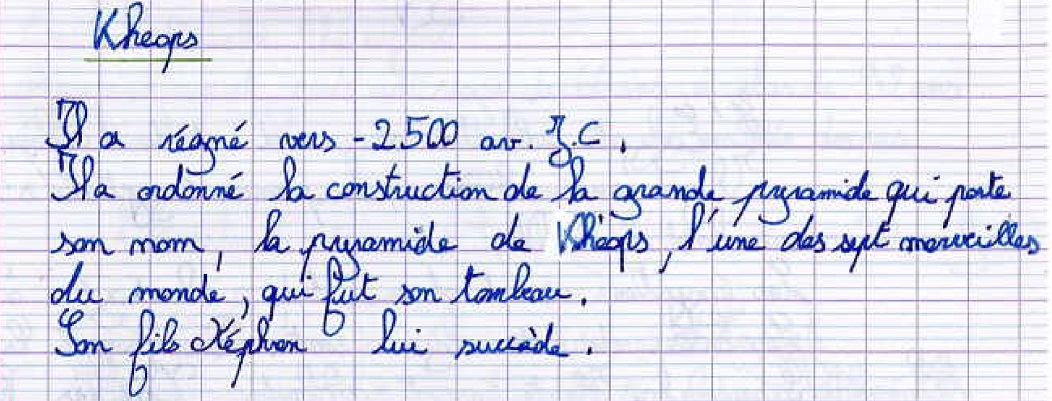 Kheops
Il a régné vers -2500 av. J.C.
Il a ordonné la construction de la grande pyramide qui porte
son nom, la pyramide de Khéops, l'une des sept merveilles
du monde, qui fut son tombeau.
Son fils Képhren lui succède.